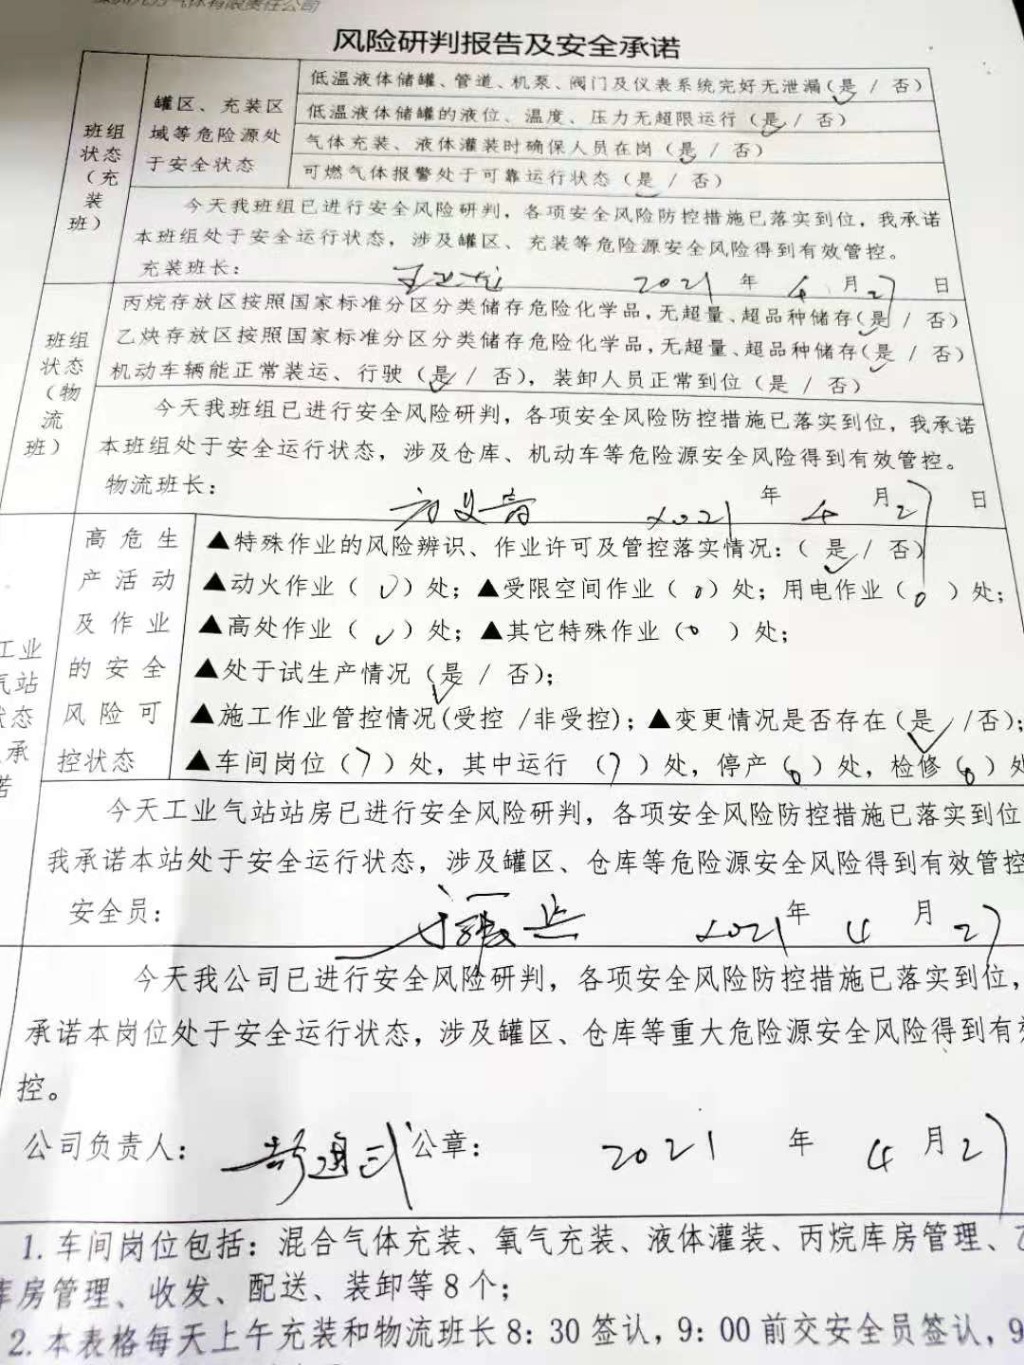 气体有限责任公司
风险研判报告及安全承诺
班组状态（充装班）
罐区、充装区域等危险源处于安全状态
低温液体储罐、管道、机泵、阀门及仪表系统完好无泄漏(是 / 否)
低温液体储罐的液位、温度、压力无超限运行（是 / 否）
气体充装、液体灌装时确保人员在岗（是 / 否）
可燃气体报警处于可靠运行状态（是 / 否）
今天我班组已进行安全风险研判，各项安全风险防控措施已落实到位，我承诺
本班组处于安全运行状态，涉及罐区、充装等危险源安全风险得到有效管控。
充装班长： 2021 年 4 月 27 日
班组状态（物流班）
丙烷存放区按照国家标准分区分类储存危险化学品，无超量、超品种储存(是 / 否)
乙炔存放区按照国家标准分区分类储存危险化学品，无超量、超品种储存(是 / 否)
机动车辆能正常装运、行驶（是 / 否），装卸人员正常到位（是 / 否）
今天我班组已进行安全风险研判，各项安全风险防控措施已落实到位，我承诺
本班组处于安全运行状态，涉及仓库、机动车等危险源安全风险得到有效管控。
物流班长： 2021 年 4 月 27 日
工业
气站
状态
承
诺
高危生产活动及作业的安全风险可控状态
▲特殊作业的风险辨识、作业许可及管控落实情况：（ 是 / 否）
▲动火作业（ ）处；▲受限空间作业（ 0 ）处；用电作业（ 0 ）处；
▲高处作业（ ）处；▲其它特殊作业（ 0 ）处；
▲处于试生产情况（是 / 否）；
▲施工作业管控情况(受控 /非受控)；▲变更情况是否存在（是 /否）；
▲车间岗位（7）处，其中运行 （7）处，停产（0）处，检修（0）处
今天工业气站站房已进行安全风险研判，各项安全风险防控措施已落实到位
我承诺本站处于安全运行状态，涉及罐区、仓库等危险源安全风险得到有效管控
安全员： 2021 年 4 月 27
今天我公司已进行安全风险研判，各项安全风险防控措施已落实到位，
承诺本岗位处于安全运行状态，涉及罐区、仓库等重大危险源安全风险得到有效
控。
公司负责人： 公章： 2021 年 4 月 27
1.车间岗位包括：混合气体充装、氧气充装、液体灌装、丙烷库房管理、乙
库房管理、收发、配送、装卸等8个；
2.本表格每天上午充装和物流班长8：30签认，9：00前交安全员签认，9